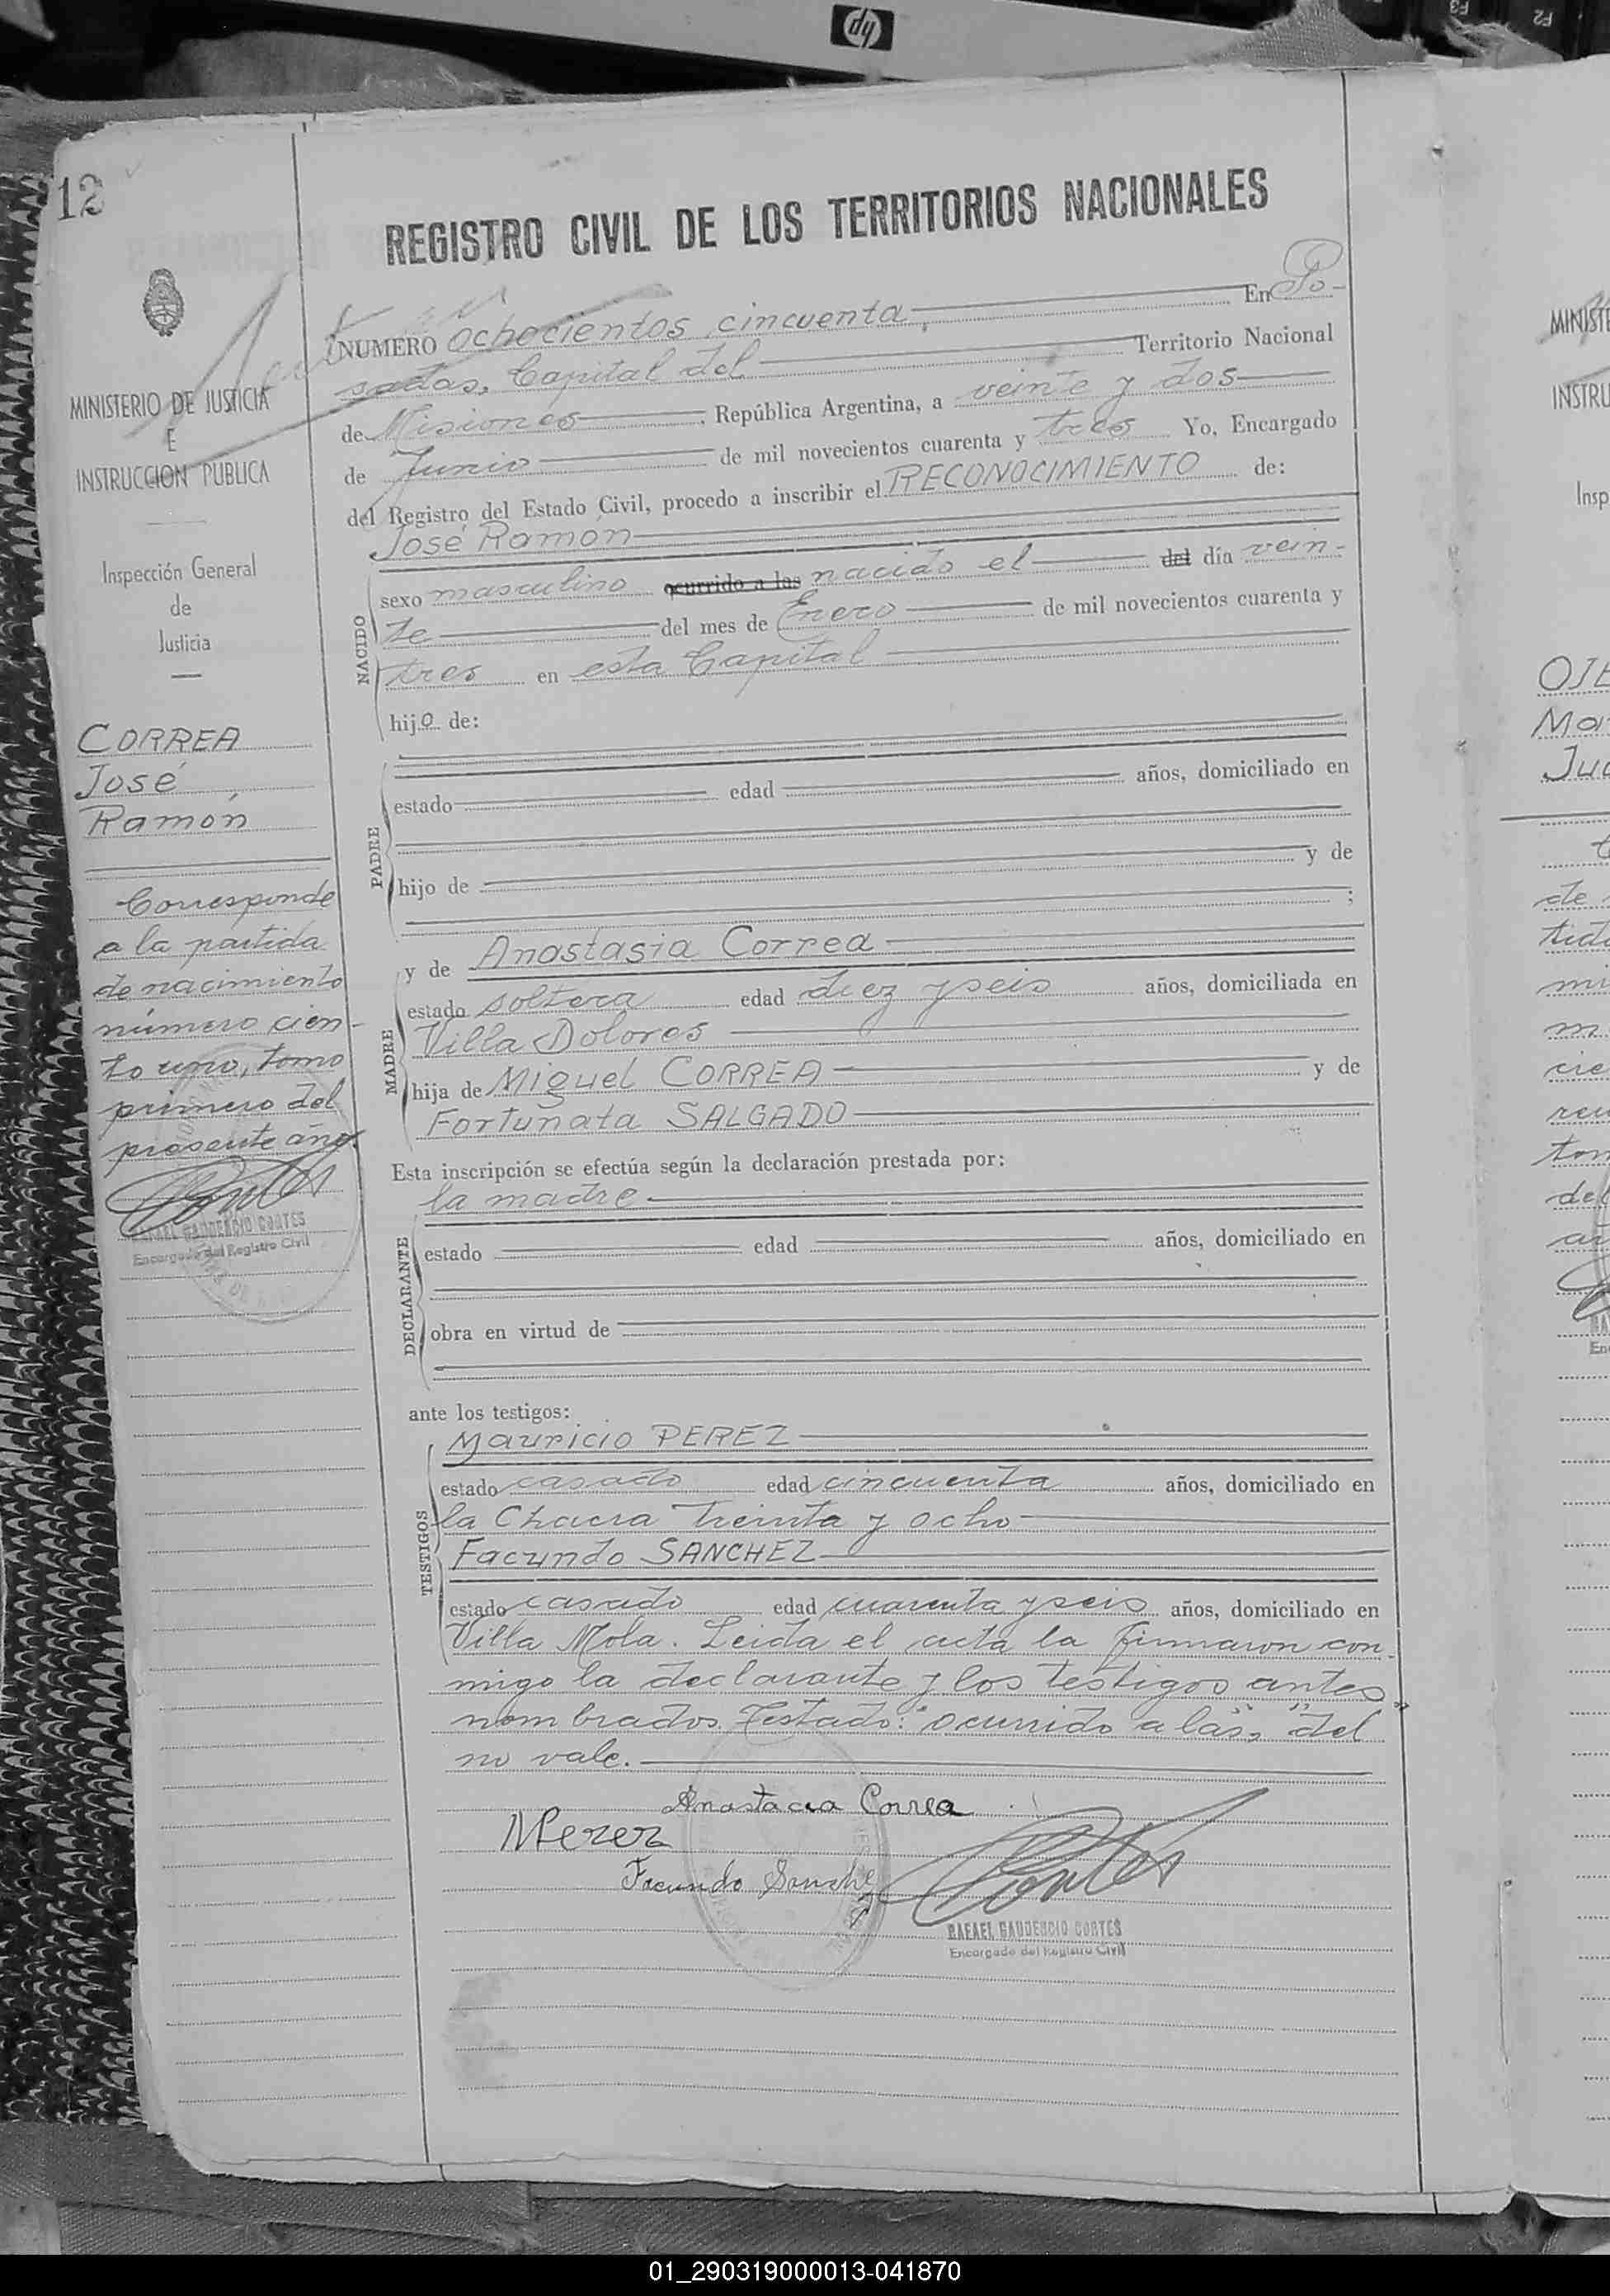 hp
12
REGISTRO CIVIL DE LOS TERRITORIOS NACIONALES
NUMERO ochocientos cincuenta, En Po-
sadas, Capital del Territorio Nacional
de Misiones, República Argentina, a veinte y dos
de Junio de mil novecientos cuarenta y tres Yo, Encargado
del Registro del Estado Civil, procedo a inscribir el RECONOCIMIENTO de:
José Ramón
NACIDO
sexo masculino ocurrido a las nacido el del día vein-
te del mes de Enero de mil novecientos cuarenta y
tres en esta Capital
hijo de:
PADRE
estado edad años, domiciliado en
hijo de y de
;
y de Anastasia Correa
MADRE
estado soltera edad diez y seis años, domiciliada en
Villa Dolores
hija de Miguel CORREA y de
Fortunata SALGADO
Esta inscripción se efectúa según la declaración prestada por:
la madre
DECLARANTE
estado edad años, domiciliado en
obra en virtud de
ante los testigos:
Mauricio PEREZ
TESTIGOS
estado casado edad cincuenta años, domiciliado en
la Chacra treinta y ocho
Facundo SANCHEZ
estado casado edad cuarenta y seis años, domiciliado en
Villa Mola. Leida el acta la firmaron con-
migo la declarante y los testigos antes
nombrados. Testado: "ocurrido a las", "del"
no vale.
Anastacia Correa
MPerez
Facundo Sanchez
RAFAEL GAUDENCIO CORTES
Encargado del Registro Civil
MINISTERIO DE JUSTICIA
E
INSTRUCCION PUBLICA
Inspección General
de
Justicia
CORREA
José
Ramón
Corresponde
a la partida
de nacimiento
número cien-
to uno, tomo
primero del
presente año.
RAFAEL GAUDENCIO CORTES
Encargado del Registro Civil
MINISTE
INSTRU
Insp
OJE
Ma
Jua
de
mi
cie
ton
del
01_290319000013-041870